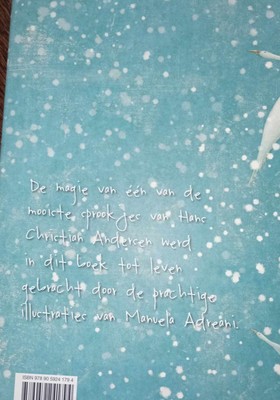 De magie van één van de
mooiste sprookjes van Hans
Christian Andersen werd
in dit boek tot leven
gebracht door de prachtige
illustraties van Manuela Adreani.
ISBN 978 90 5924 179 4